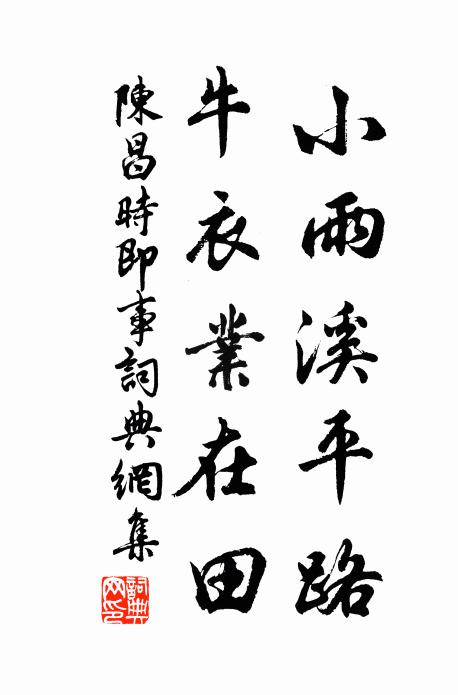 小雨溪平路
牛衣業在田
陳昌時即事詞典網集
詞典网印